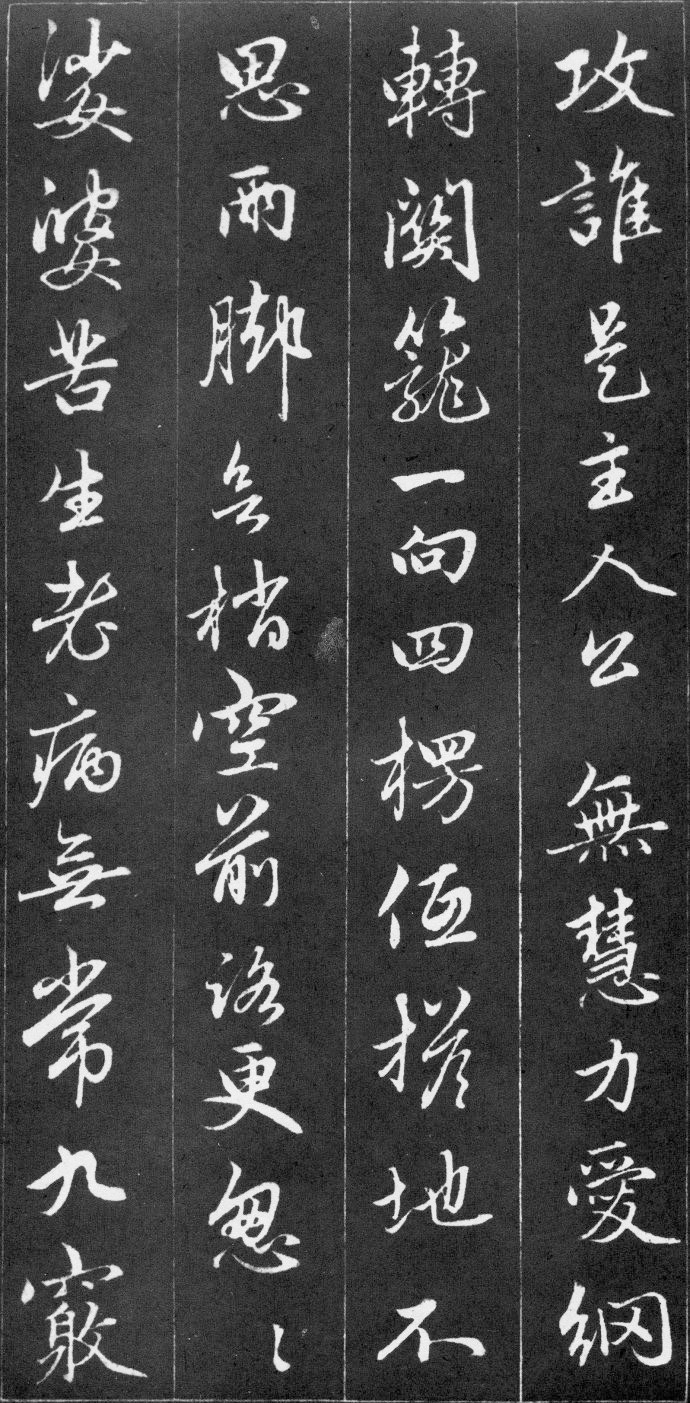 攻誰是主人公無慧力愛網
轉關籠一向四楞低搭地不
思兩脚無梢空前路更忽〻
娑婆苦生老病無常九竅